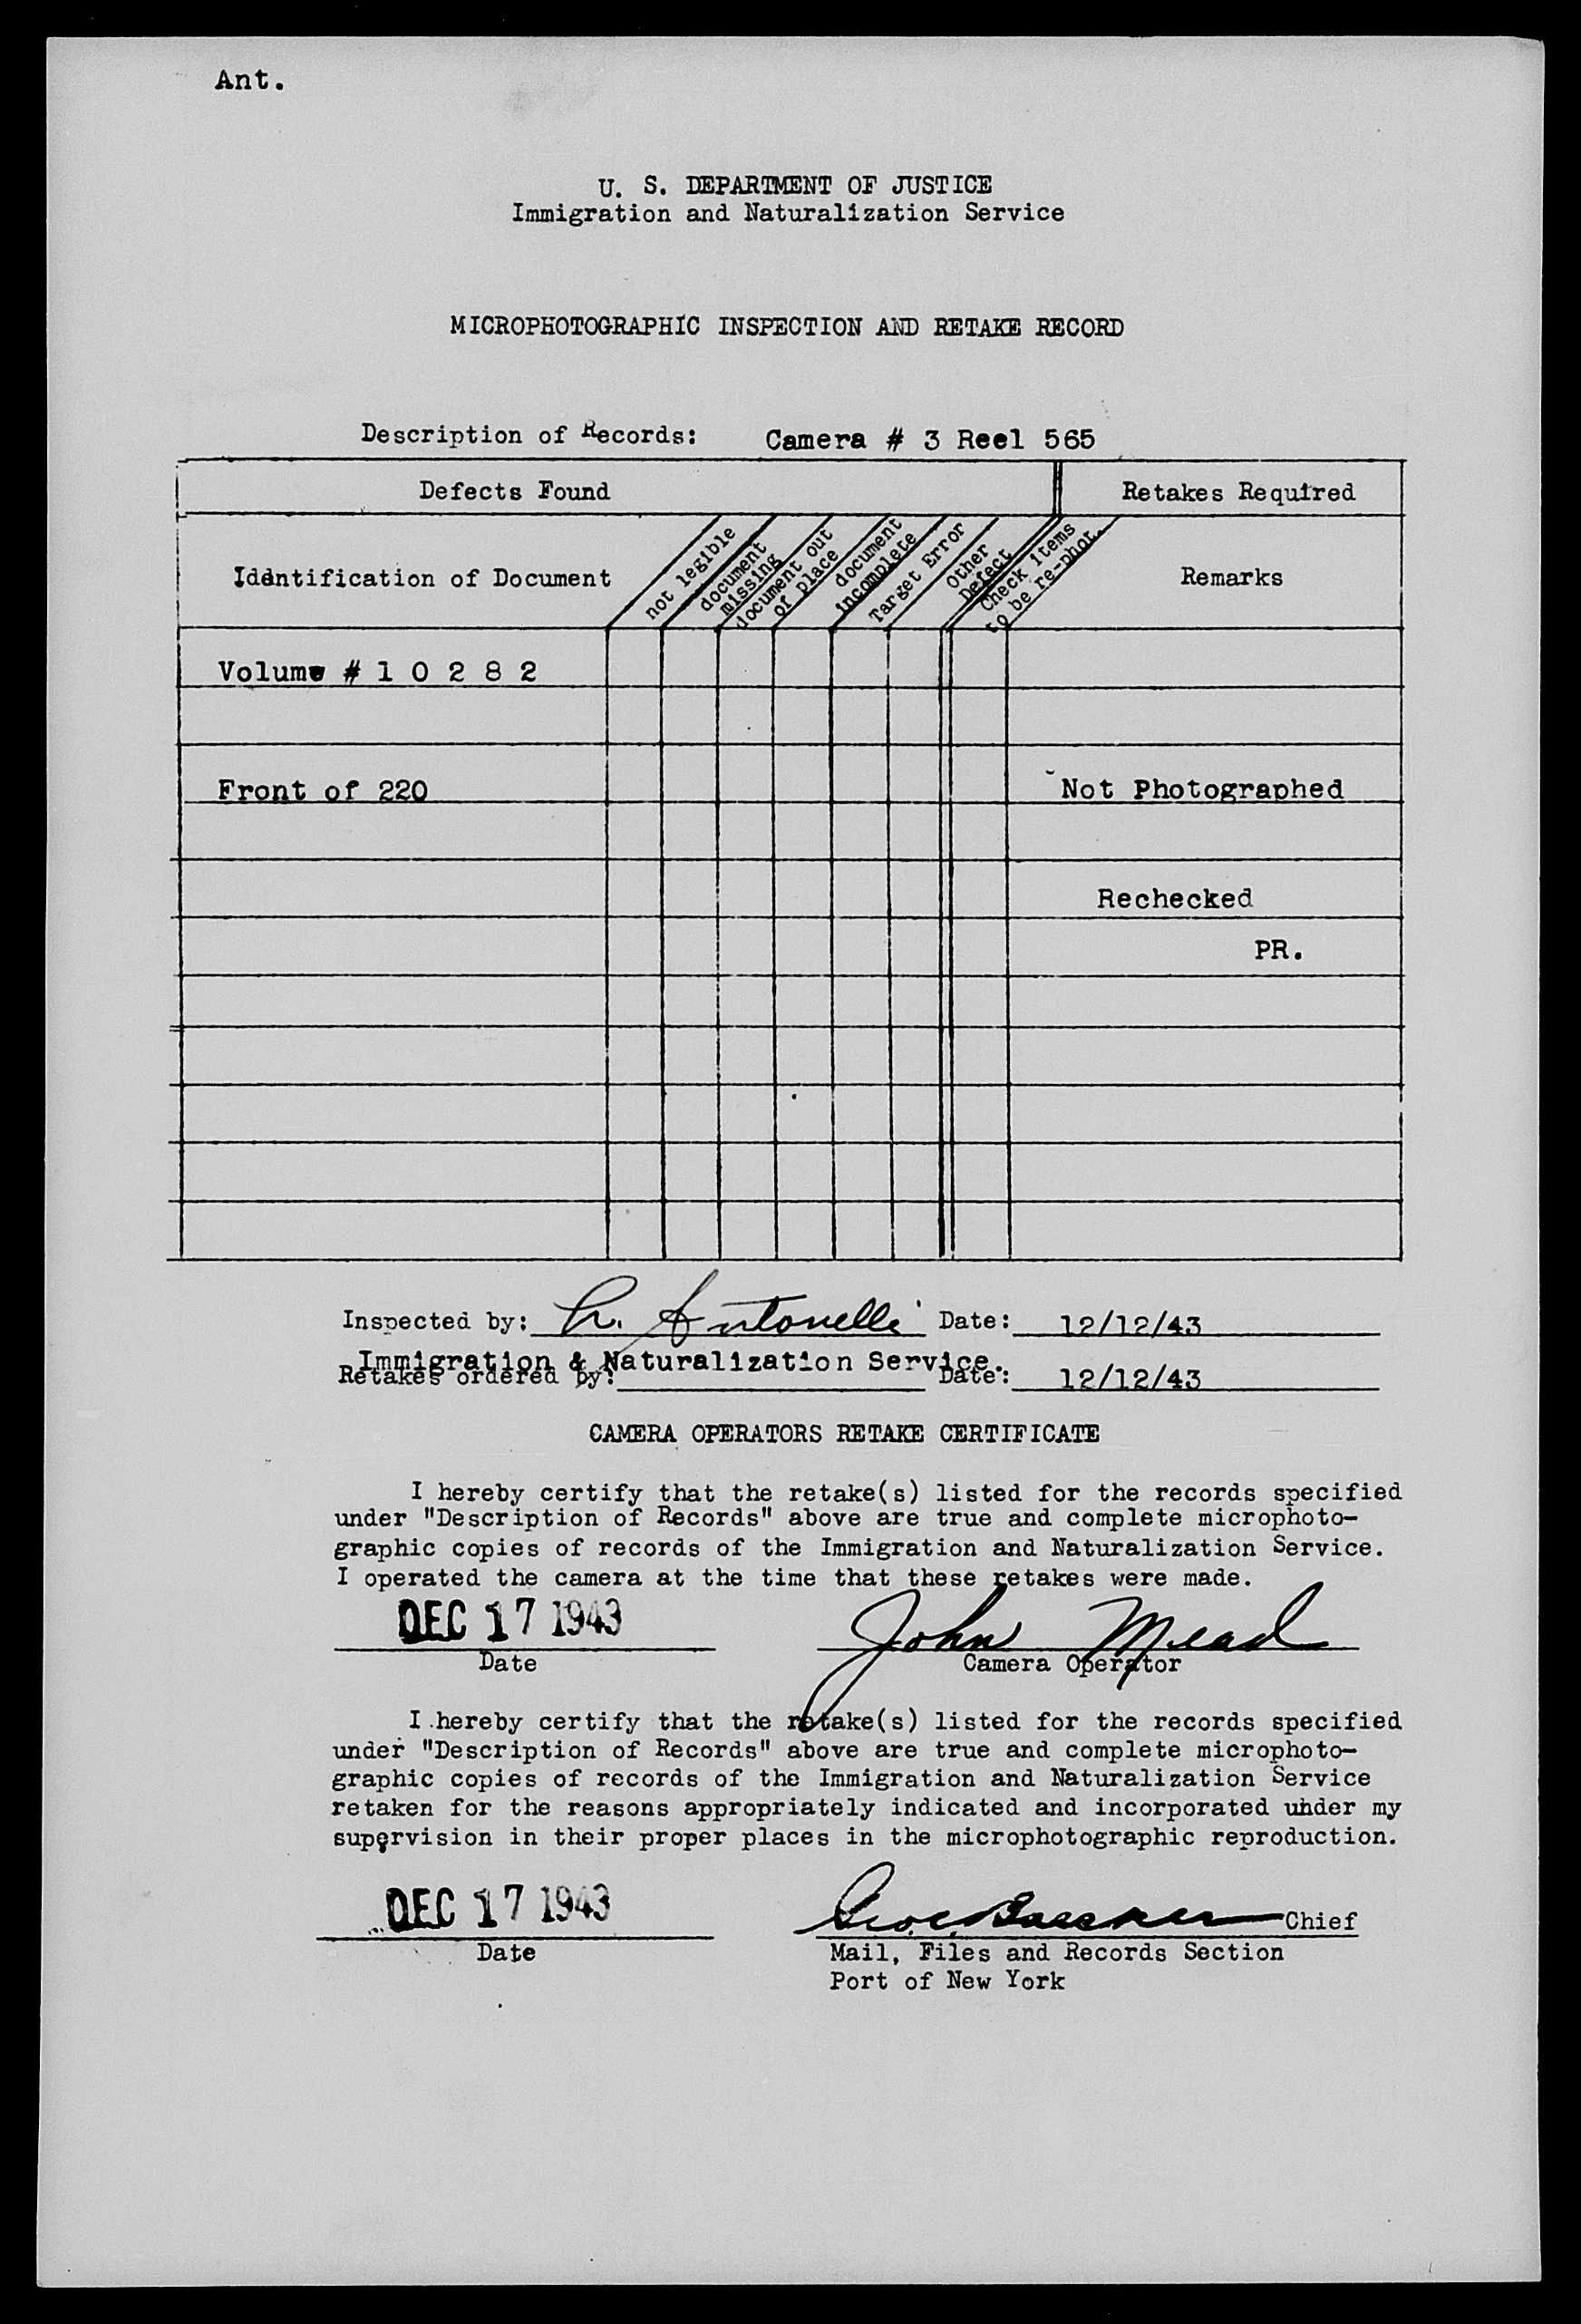 Ant.
U. S. DEPARTMENT OF JUSTICE
Immigration and Naturalization Service
MICROPHOTOGRAPHIC INSPECTION AND RETAKE RECORD
Description of Records: Camera # 3 Reel 565
Defects Found
Retakes Required
Identification of Document
not legible
document missing
document out of place
document incomplete
Target Error
Other Defect
Check items to be re-phot.
Remarks
Volume # 1 0 2 8 2
Front of 220 Not Photographed
Rechecked
PR.
Inspected by: Antonelli Date: 12/12/43
Immigration & Naturalization Service.
Retakes ordered by: Date: 12/12/43
CAMERA OPERATORS RETAKE CERTIFICATE
I hereby certify that the retake(s) listed for the records specified
under "Description of Records" above are true and complete microphoto-
graphic copies of records of the Immigration and Naturalization Service.
I operated the camera at the time that these retakes were made.
DEC 17 1943 John Mead
Date Camera Operator
I hereby certify that the retake(s) listed for the records specified
under "Description of Records" above are true and complete microphoto-
graphic copies of records of the Immigration and Naturalization Service
retaken for the reasons appropriately indicated and incorporated under my
supervision in their proper places in the microphotographic reproduction.
DEC 17 1943 Chief
Date Mail, Files and Records Section
Port of New York